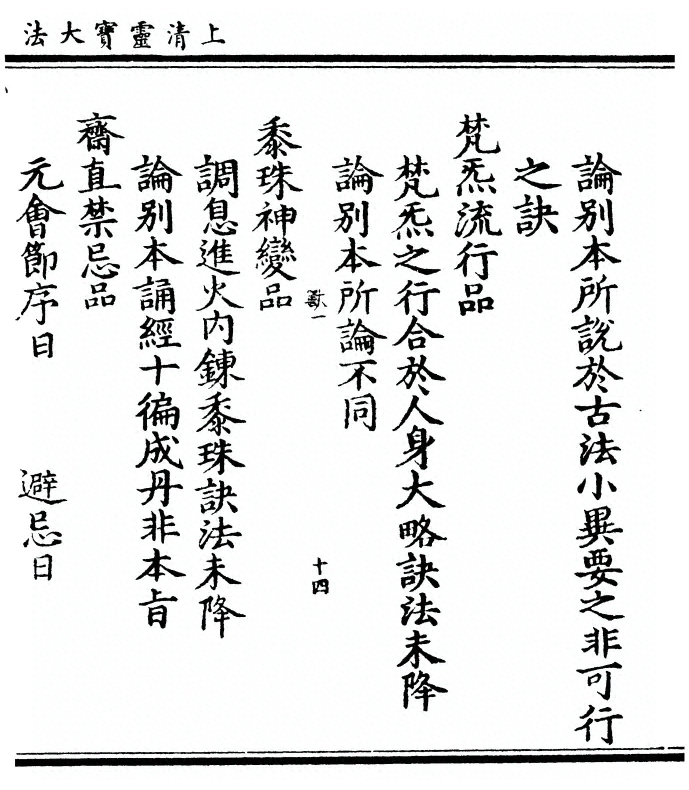 上清靈寶大法
論別本所說於古法小異要之非可行
之訣
梵炁流行品
梵炁之行合於人身大略訣法未降
論別本所論不同
十四
黍珠神變品
調息進火內鍊黍珠訣法未降
論別本誦經十徧成丹非本旨
齋直禁忌品
元會節序日　避忌日